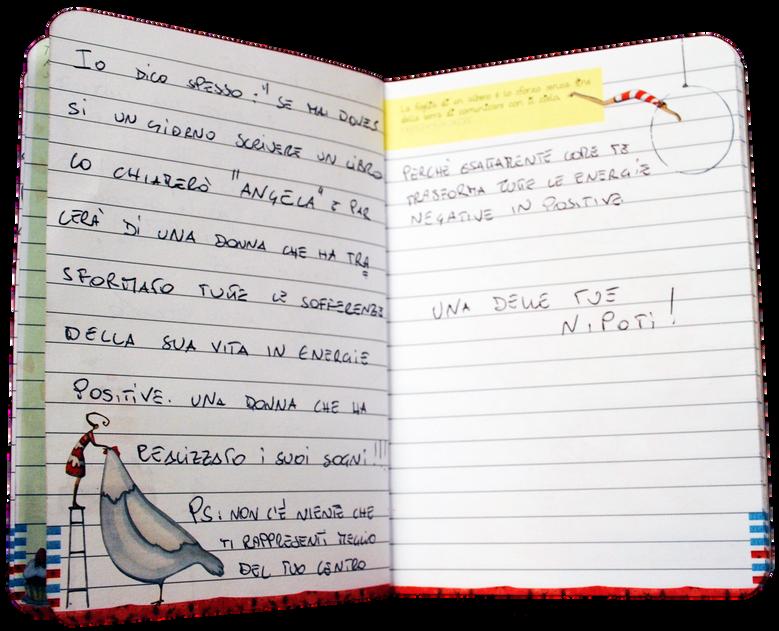 IO DICO SPESSO: "SE MAI DOVES
SI UN GIORNO SCRIVERE UN LIBRO
LO CHIAMERÒ "ANGELA" E PAR
LERÀ DI UNA DONNA CHE HA TRA
SFORMATO TUTTE LE SOFFERENZE
DELLA SUA VITA IN ENERGIE
POSITIVE. UNA DONNA CHE HA
REALIZZATO I SUOI SOGNI!!!
PS: NON C'È NIENTE CHE
TI RAPPRESENTI MEGLIO
DEL TUO CENTRO
La foglia di un albero è lo sforzo senza fine
della terra di comunicare con il cielo.
PERCHÈ ESATTAMENTE COME TE
TRASFORMA TUTTE LE ENERGIE
NEGATIVE IN POSITIVE
UNA DELLE TUE
NIPOTI!